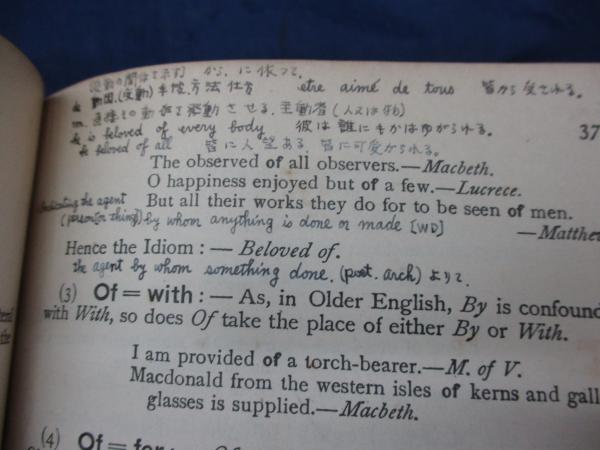 受動の関係を示す から、に依って、
動因、(受動) 手段方法仕方 etre aimé de tous 皆から愛される。
直接その動作を発動させる、主動者 (人又は物)
is beloved of every body 彼は誰にもかはゆがられる。
be beloved of all 皆に人望ある、皆に可愛がられる。
37
The observed of all observers.—Macbeth.
O happiness enjoyed but of a few.—Lucrece.
Indicating the agent But all their works they do for to be seen of men.
(person or thing) by whom anything is done or made [WD] —Matthe
Hence the Idiom : — Beloved of.
the agent by whom something done. (poet. arch) より、
(3) Of = with : — As, in Older English, By is confound
with With, so does Of take the place of either By or With.
the
I am provided of a torch-bearer.—M. of V.
Macdonald from the western isles of kerns and gall
glasses is supplied.—Macbeth.
(4) Of = for